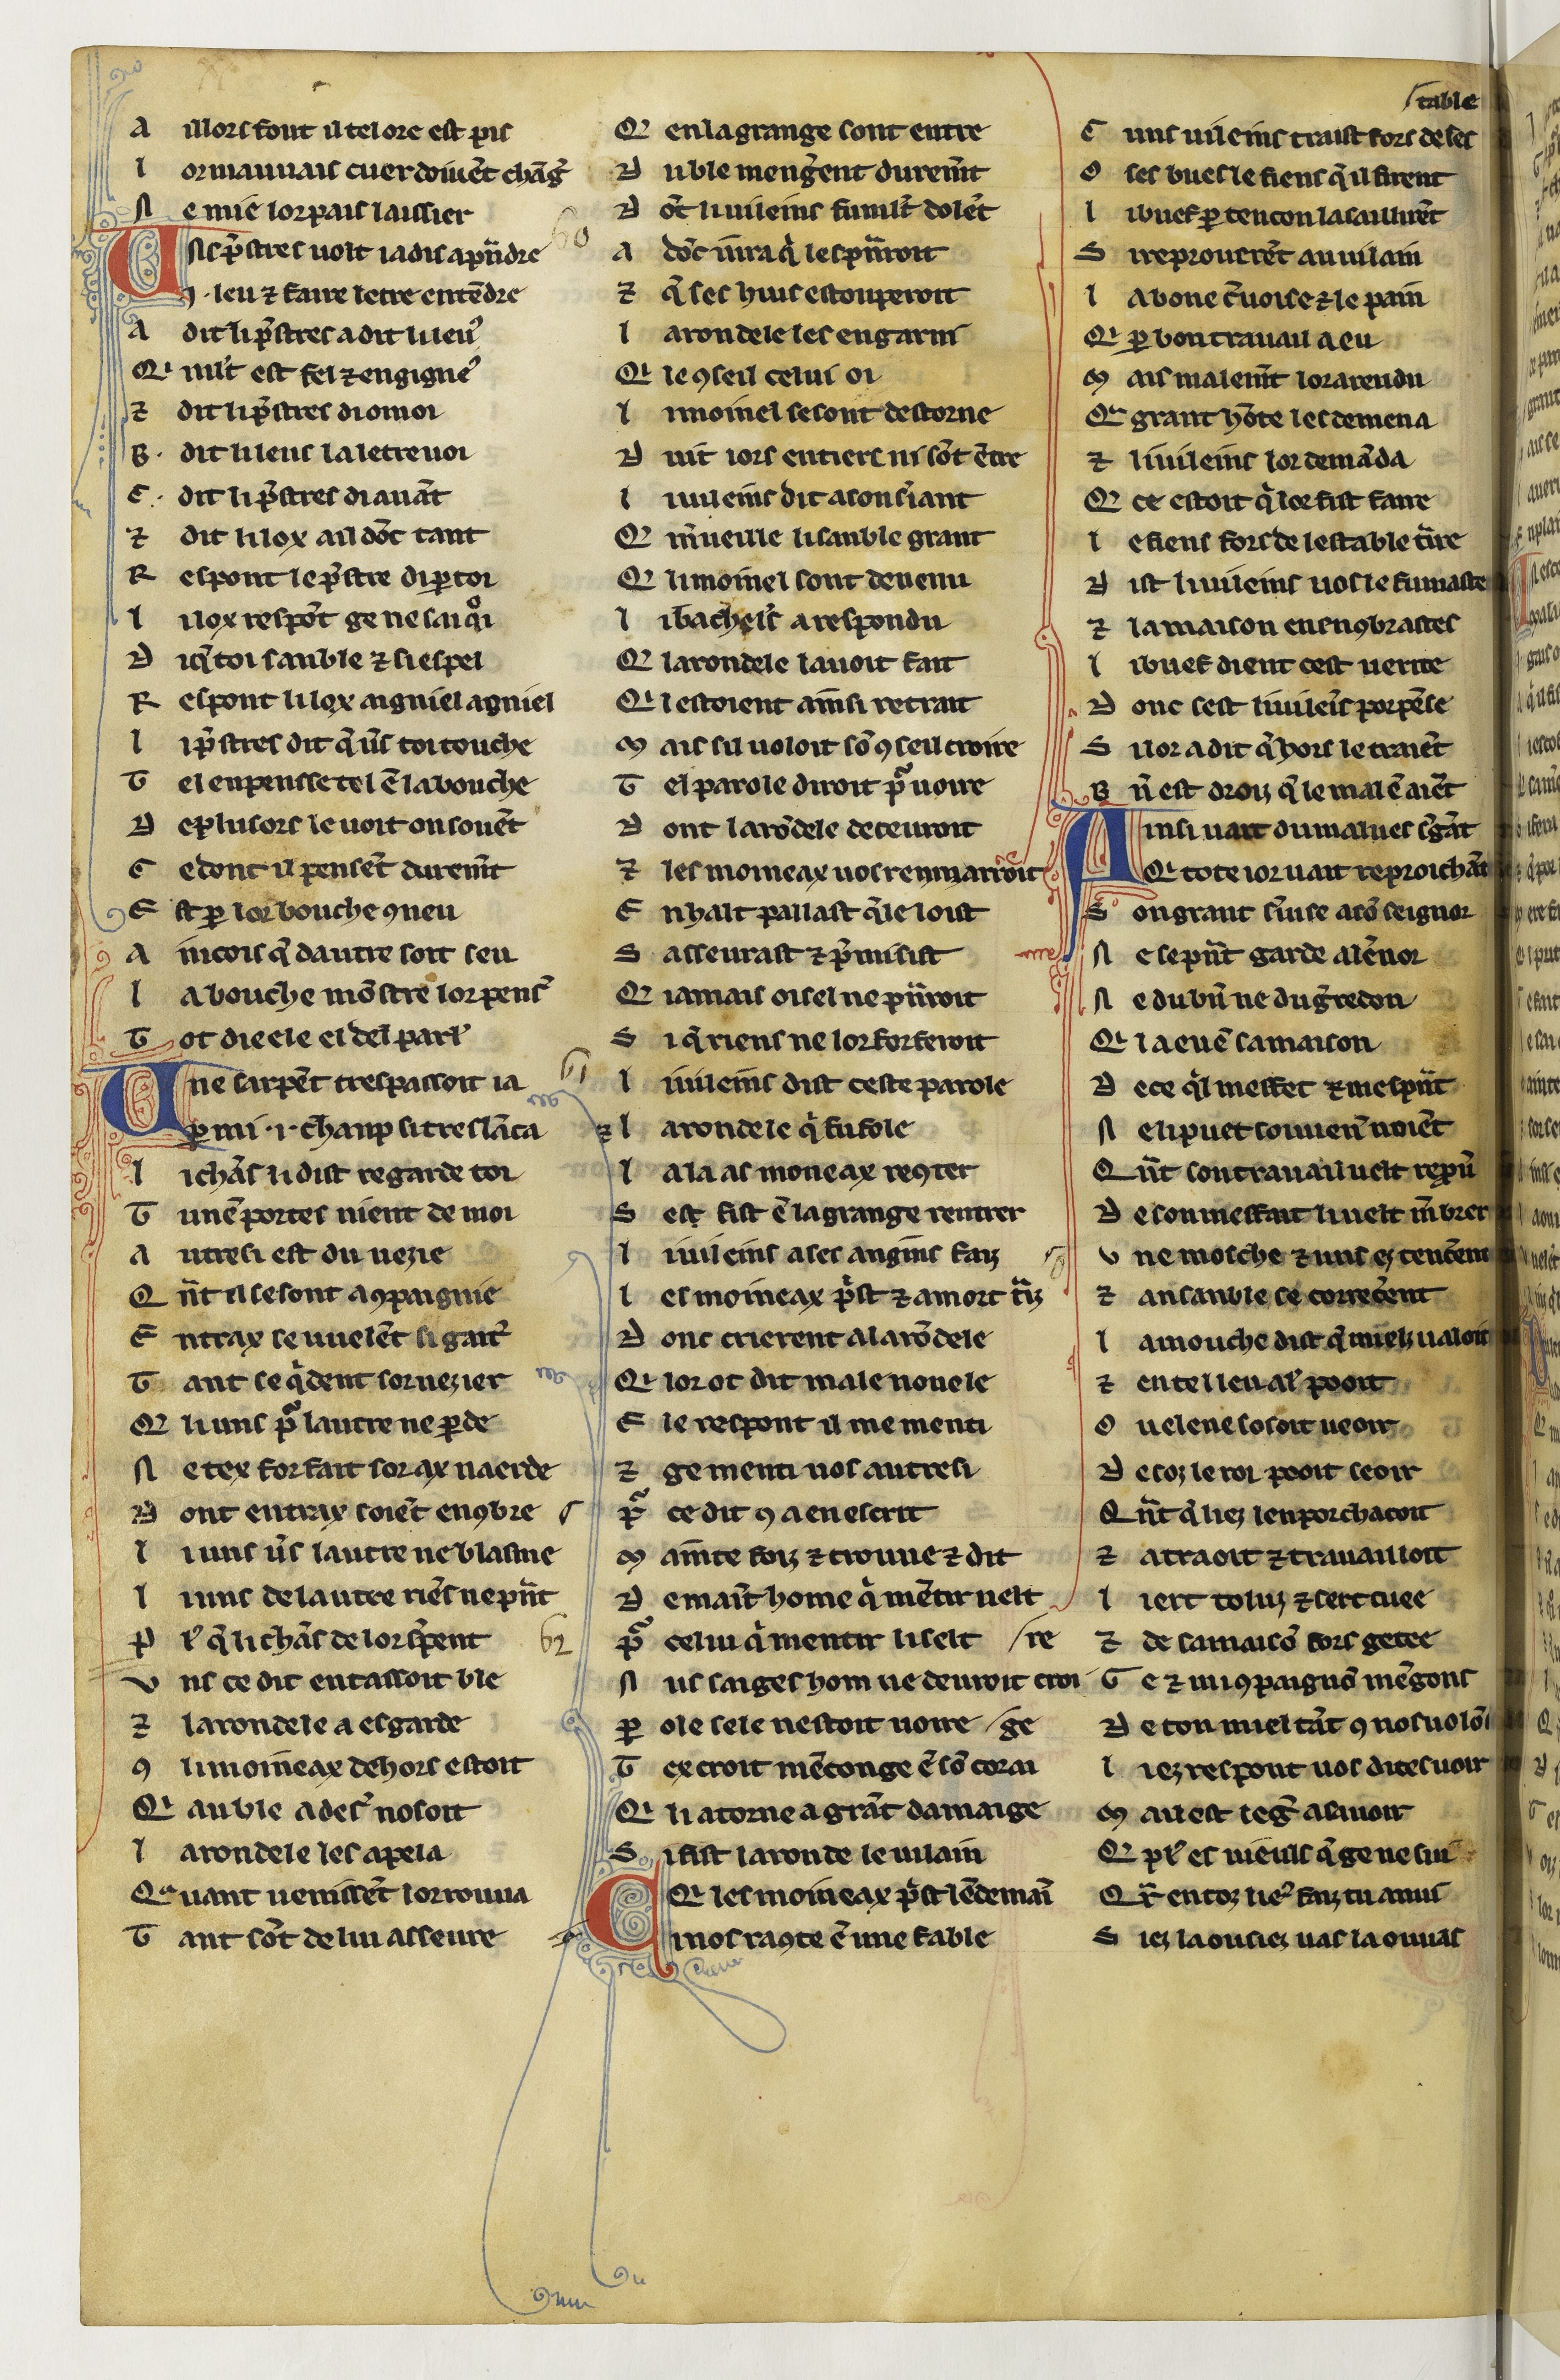 A illors sont il tel ore est pis
L or mauuais cuer doiuẽt chãg̃
N e mie lor païs laissier
U ns p̃stres uolt iadis apñdre
.j. leu ⁊ faire letre entẽdre
A dit li p̃stres a dit li leus
Q ml't est fel ⁊ engigneˀ
Z dit li p̃stres di o moi
B. dit li leus la letre uoi
C. dit li p̃stres di auãt
Z dit li lox a il dõc tant
R espont le p̃stre di ꝑ toi
L i lox respõt ge ne sai qͦi
D i q̃ toi sanble ⁊ si espel
R espont li lox aigniel agniel
L i p̃stres dit q̃ u̾s toi touche
T el en pensse tel ẽ la bouche
D e plusors le uoit on souẽt
C e dont il pensẽt durem̃t
E st ꝑ lor bouche ꝯneu
A incois q̃ dautre soit seu
L a bouche mõstre lor pens̾
T ot die ele el del parl̾
U ne sarpẽt trespassoit ia
ꝑ mi .i. chanp si tres lãca
L i chãs li dist regarde toi
T u nẽ portes nient de moi
A utresi est du uezie
Q ñt il se sont aꝯpaignie
E ntrax se uuelẽt si gait̾
T ant se q̾dent sor uezier
Q li uns p̾ lautre ne ꝑde
N e tex forfait sor ax naerde
D ont entrax soiẽt enꝯbre
L i uns u̾s lautre ne blasme
L i uns de lautre riẽs ne pñt
P l̾ q̃ li chãs de lor s̾pent
V ns ce dit entassoit ble
Z larondele a esgarde
ꝯ li moineax dehors estoit
Q au ble adesˀ nosoit
L arondele les apela
Q uant uenissẽt lor rouua
T ant sõt de lui asseure
Q en la grange sont entre
D u ble meng̾ent durem̃t
D õt li uileins fu ml't dolẽt
A dõc iura q̾ les pñroit
Z q̃ ses huis estouperoit
L arondele les engarni
Q le ꝯseil celui oi
L i moinel se sont destorne
D uit iors entiers ni sõt ẽtre
L i uileins dit a son s̾iant
Q m̾ueille li sanble grant
Q li moinel sont deuenu
L i bachel̾s a respondu
Q larondele lauoit fait
Q l estoient ainsi retrait
M ais sil uoloit sõ ꝯseil croire
T el parole diroit p̾ uoire
D ont larõdele deceuroit
Z les moineax uos renmarroit
E n halt pallast q̃ le loist
S asseurast ⁊ p̾misist
Q iamais oisel ne pñroit
S i q̾ riens ne lor forferoit
L i uileins dist ceste parole
L arondele q̾ fu fole
L a la as moneax reꝯter
S es fist ẽ la grange rentrer
L i uileins a ses angins faiz
L es moineax p̾st ⁊ a mort t̾iz
D onc crierent a larõdele
Q lor ot dit male nouele
E le respont il me menti
Z ge menti uos autresi
P̾ ce dit ꝯ a en escrit
M ainte foiz ⁊ trouue ⁊ dit
D e maĩt home q̾ mẽtir uelt
P̾ celui q̾ mentir li selt
N us saiges hom ne deuroit croi/re
P ole sele nestoit uoire
T ex croit mẽconge ẽ sõ corai/ge
Q li atorne a grãt damaige
S i fist laronde le uilain
Q les moineax p̾st lẽdemaĩ
C i nos raꝯte ẽ une fable
C uns uileins traist fors de ses/table
O ses bues le fiens q̃ il firent
L i buef ꝑ tencon lasaillirẽt
S i reprouerẽt au uilain
L a bone c̾uoise ⁊ le pain
Q ꝑ bon trauail a eu
M ais malem̃t lor a rendu
Q grant hõte les demena
Z li uileins lor demãda
Q ce estoit q̾ lor fist faire
L e fiens fors de lestable t̾ire
D ist li uileins uos le fumastes
Z la maison en enꝯbrastes
L i buef dient cest uerite
D onc sest li uileĩs porpẽse
S i lor a dit q̃ hors le traiẽt
B ñ est droiz q̃ le mal ẽ aiẽt
A insi uait du malues s̾gãt
Q tote ior uait reproichãt
S on grant s̾uise a sõ seignor
N e se pñt garde a lẽnor
N e du bñ ne du g̾redon
Q l a eu ẽ sa maison
D e ce q̾l meffet ⁊ mespñt
N e li puet souuenir noiẽt
Q ñt son trauail uelt repñ
D e son meffait li uelt m̃brer
V ne molche ⁊ uns ez tencẽent
Z ansanble se correcẽent
L a mouche dist q̃ mielz ualoit
Z en tel leu al̾ pooit
O u ele ne sosoit ueoir
D esoz le roi pooit seoir
Q ñt q̾ liez lenporchacoit
Z atraoit ⁊ trauailloit
L i ert toluz ⁊ sert tuee
Z de sa maisõ fors getee
G e ⁊ mi ꝯpaignõ mẽgons
D e ton miel tãt ꝯ nos uolõs
L i ez respont uos dites uoir
M ail est leg̾ a sauoir
Q pl̾ es uieulz q̃ ge ne sui
Q r̃ en toz lieˀ faiz tu anui
S iez la ou siez uas la ou uas
60
61
62